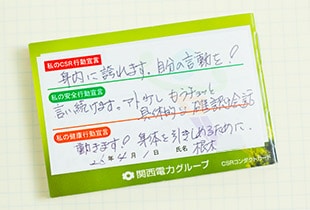 私のCSR行動宣言
身内に誇れます。自分の言動を!
私の安全行動宣言
言い続けます。アトサレ カラナゥト
具体的な確認会話
私の健康行動宣言
動きます!身体を引きしめるために、
26年4月1日 氏名 根本
関西電力グループ
CSRコンダクトカード